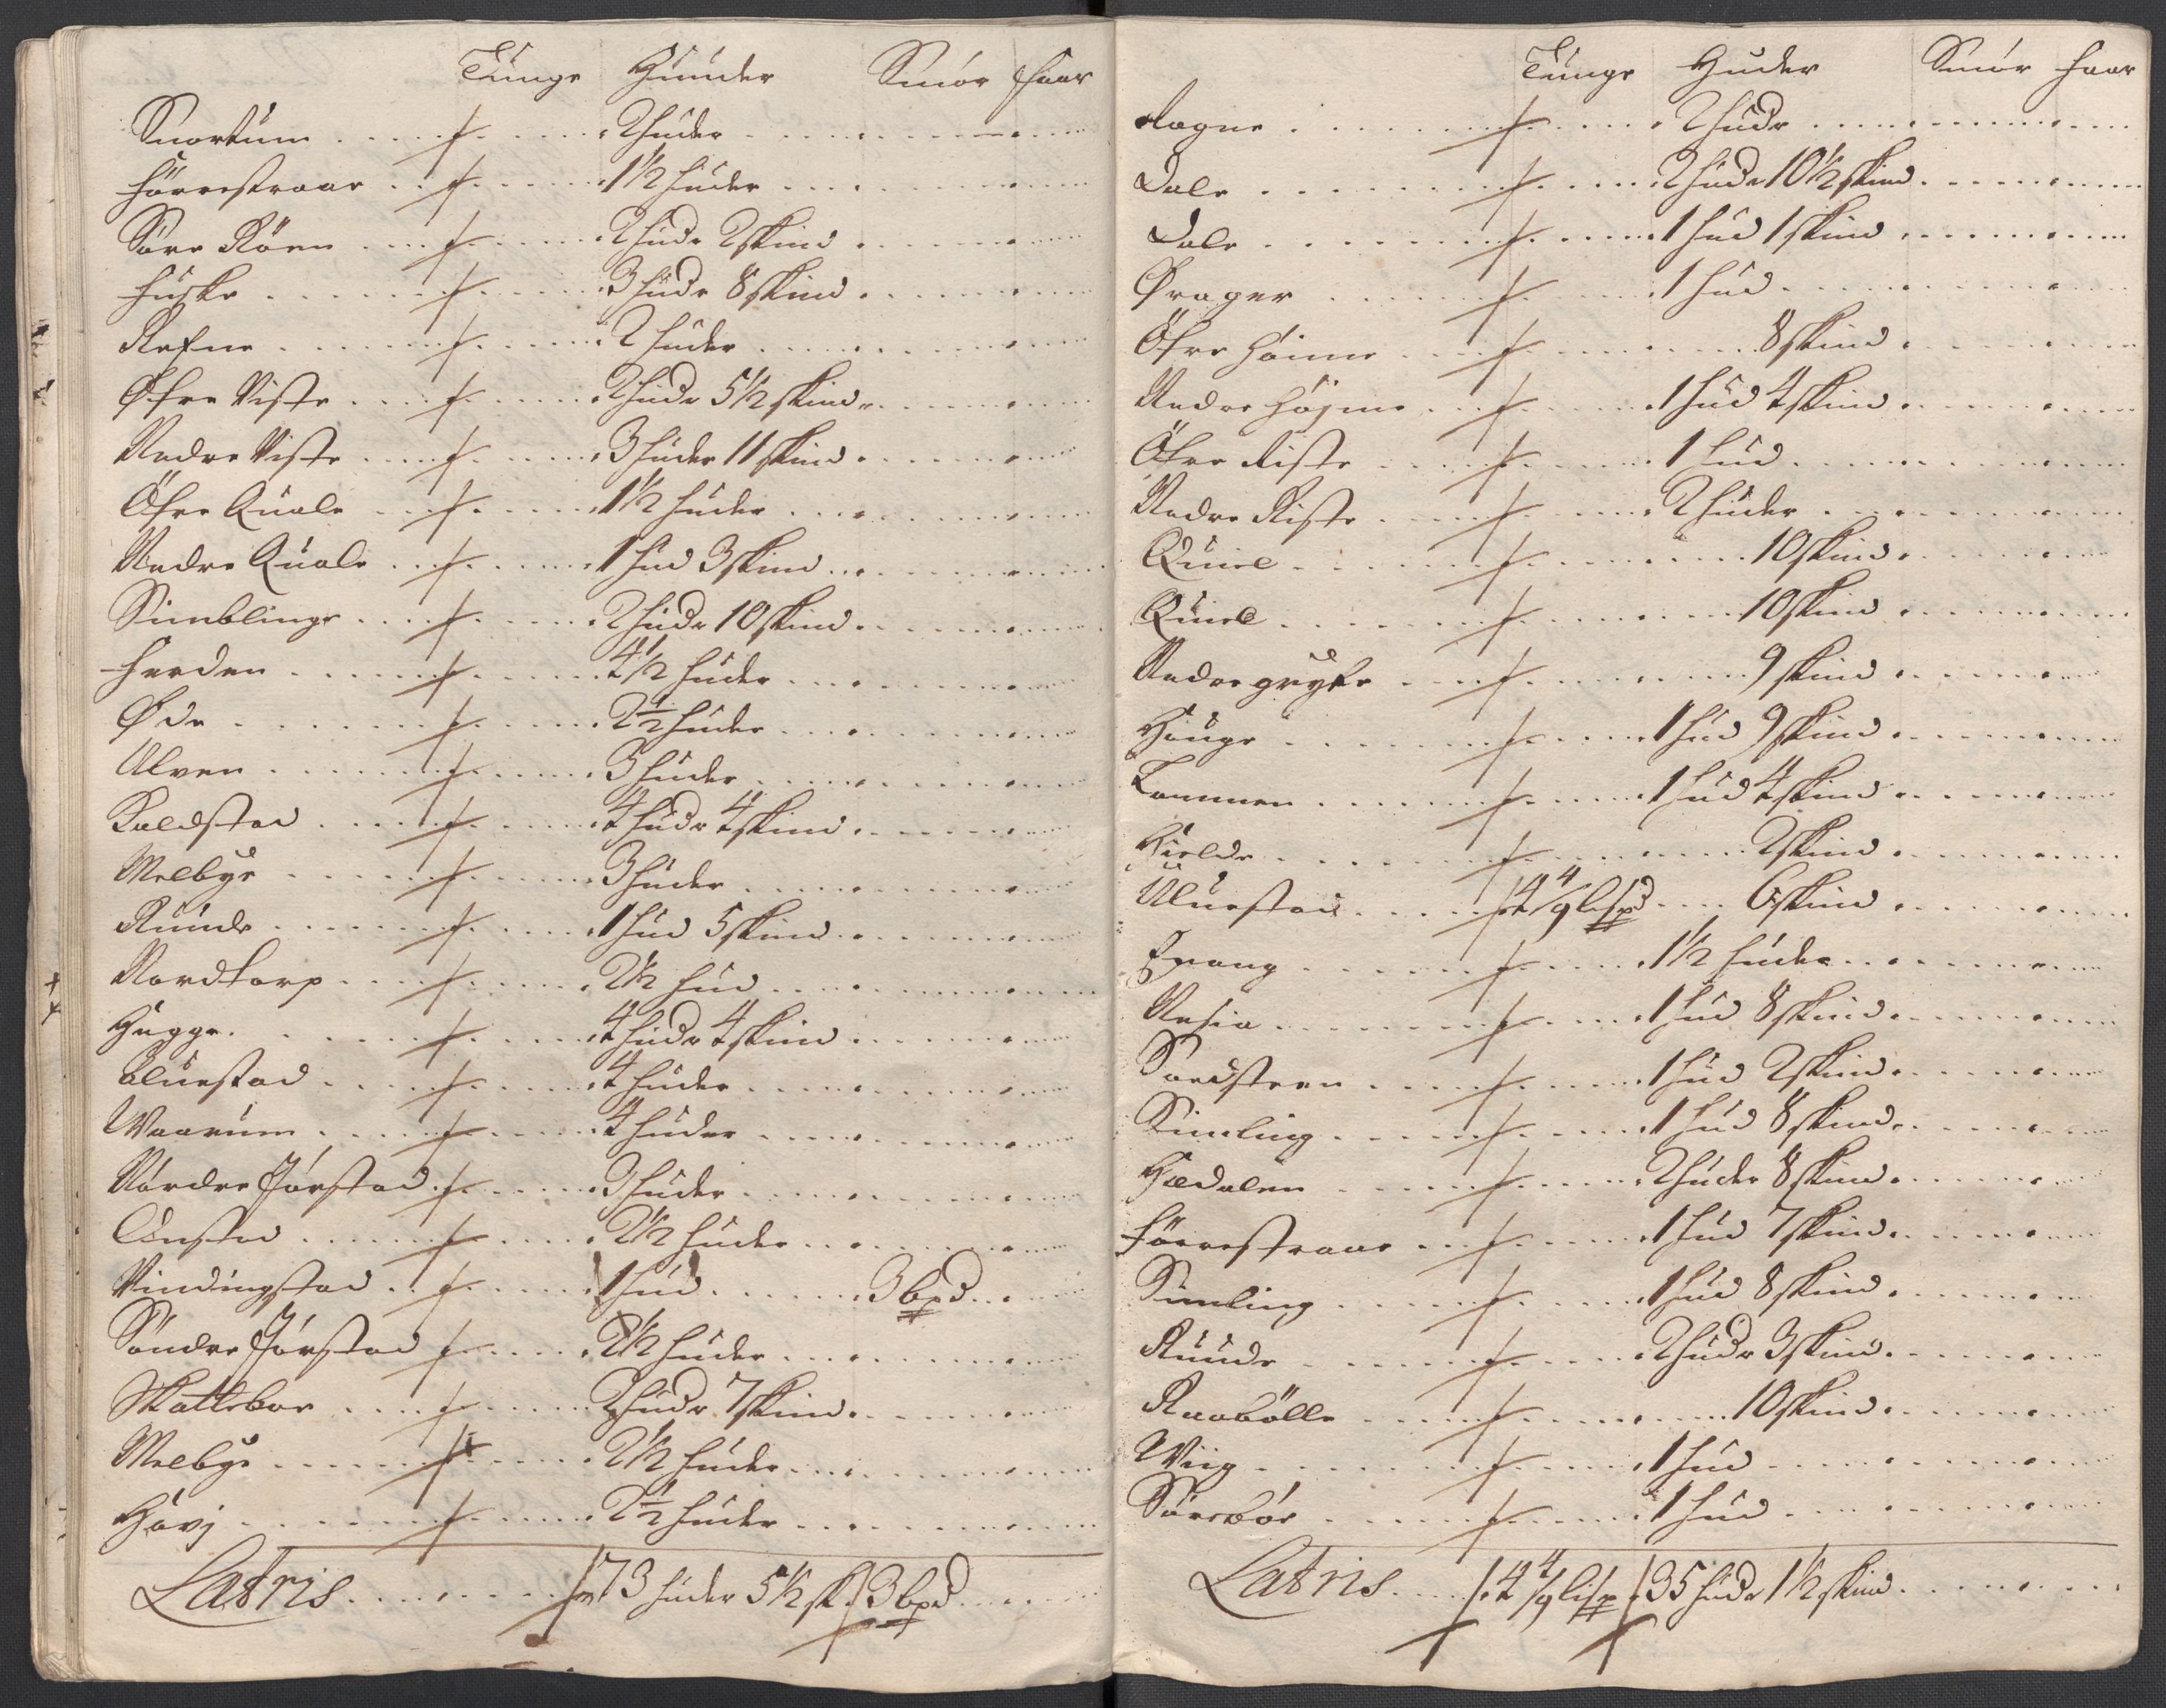 Tunge Hunder Smör Faar
Snortum 2 huder
Förrestraar 1½ huder
Söre Röen 2 hude 2 skind
Fuske 3 hude 8 skind
Refne 2 huder
Øfre Viste 2 hude 5½ skind
Nedre Viste 3 huder 11 skind
Öfre Quale 1½ huder
Nedre Quale 1 hud 3 skind
Simblinge 2 hude 10 skind
Ferden 4½ huder
Øde 2½ huder
Ulven 3 huder
Kaldstad 4 hude 4 skind
Melbye 3 huder
Runde 1 hud 5 skind
Nordtorp 2½ hud
Hugge 4 hude 4 skind
Bluestad 4 huder
Waarum 4 huder
Nördre Jörstad 3 huder
Onstad 2½ huder
Vindingstad 1 hud 3 bpd
Söndre Jörstad 2½ huder
Skatteboe 2 hude 7 skind
Melbye 2½ huder
Hövj 2½ huder
Latris 73 huder 5½ sk. 3 bpd
Tunge Huder Smör Faar
Rogne 2 hude
Dale 2 hude 10½ skind
Dale 1 hud 1 skind
Prager 1 hud
Öfre Höime 8 skind
Nedre Höjme 1 hud 4 skind
Öfre Riste 1 hud
Nedre Riste 2 huder
Quiel 10 skind
Quiel 10 skind
Nedre gryte 9 skind
Houge 1 hud 9 skind
Lommen 1 hud 4 skind
Hielde 2 skind
Uluestad 4 4/9 Lispd 6 skind
Egvang 1½ huder
Nesia 1 hud 8 skind
Sordsteen 1 hud 2 skind
Simling 1 hud 8 skind
Hædalen 2 huder 8 skind
Förrestraar 1 hud 7 skind
Simling 1 hud 8 skind
Ruude 2 hude 3 skind
Raabölle 10 skind
Wiig 1 hud
Sörebör 1 hud
Latris 4 4/9 Lisp 35 hude 1½ skind